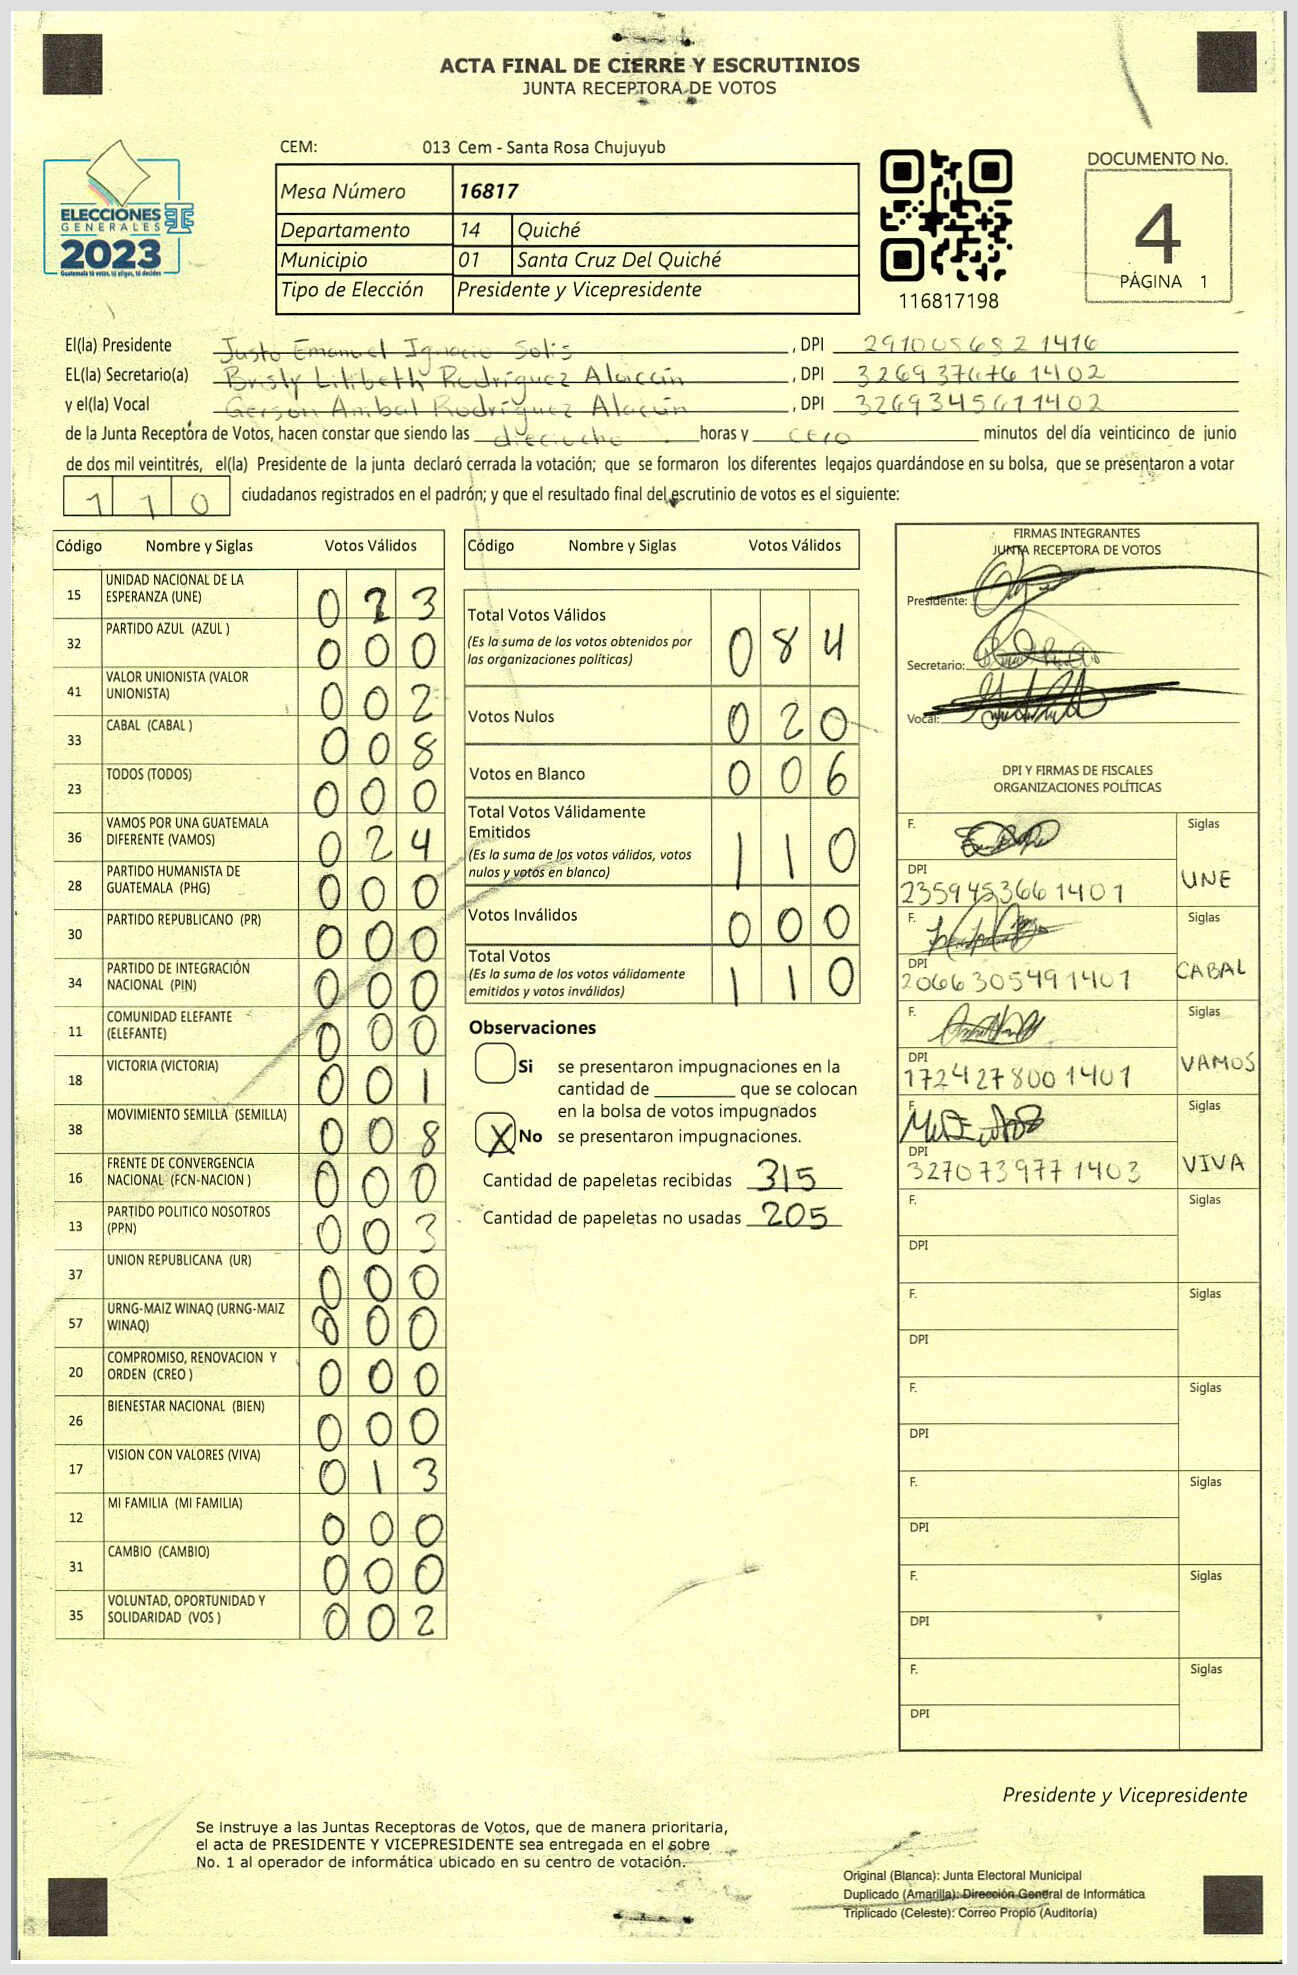 ACTA FINAL DE CIERRE Y ESCRUTINIOS
JUNTA RECEPTORA DE VOTOS
CEM: 013 Cem - Santa Rosa Chujuyub
ELECCIONES
GENERALES
2023
Guatemala tú votas, tú eliges, tú decides
Mesa Número 16817
Departamento 14 Quiché
Municipio 01 Santa Cruz Del Quiché
Tipo de Elección Presidente y Vicepresidente
116817198
DOCUMENTO No.
4
PÁGINA 1
El(la) Presidente Justo Emanuel Ignacio Solis , DPI
EL(la) Secretario(a) Brisly Lilibeth Rodríguez Alarcón , DPI 3269376761402
y el(la) Vocal Gerson Anibal Rodríguez Alarcón , DPI 3269345611402
de la Junta Receptora de Votos, hacen constar que siendo las dieciocho horas y cero minutos del día veinticinco de junio
de dos mil veintitrés, el(la) Presidente de la junta declaró cerrada la votación; que se formaron los diferentes legajos guardándose en su bolsa, que se presentaron a votar
110 ciudadanos registrados en el padrón; y que el resultado final del escrutinio de votos es el siguiente:
Código Nombre y Siglas Votos Válidos
15 UNIDAD NACIONAL DE LA ESPERANZA (UNE) 023
32 PARTIDO AZUL (AZUL ) 000
41 VALOR UNIONISTA (VALOR UNIONISTA) 002
33 CABAL (CABAL ) 008
23 TODOS (TODOS) 000
36 VAMOS POR UNA GUATEMALA DIFERENTE (VAMOS) 024
28 PARTIDO HUMANISTA DE GUATEMALA (PHG) 000
30 PARTIDO REPUBLICANO (PR) 000
34 PARTIDO DE INTEGRACIÓN NACIONAL (PIN) 000
11 COMUNIDAD ELEFANTE (ELEFANTE) 000
18 VICTORIA (VICTORIA) 001
38 MOVIMIENTO SEMILLA (SEMILLA) 008
16 FRENTE DE CONVERGENCIA NACIONAL (FCN-NACION ) 000
13 PARTIDO POLITICO NOSOTROS (PPN) 003
37 UNION REPUBLICANA (UR) 000
57 URNG-MAIZ WINAQ (URNG-MAIZ WINAQ) 000
20 COMPROMISO, RENOVACION Y ORDEN (CREO ) 000
26 BIENESTAR NACIONAL (BIEN) 000
17 VISION CON VALORES (VIVA) 013
12 MI FAMILIA (MI FAMILIA) 000
31 CAMBIO (CAMBIO) 000
35 VOLUNTAD, OPORTUNIDAD Y SOLIDARIDAD (VOS ) 002
Código Nombre y Siglas Votos Válidos
Total Votos Válidos 084
(Es la suma de los votos obtenidos por
las organizaciones políticas)
Votos Nulos 020
Votos en Blanco 006
Total Votos Válidamente
Emitidos 110
(Es la suma de los votos válidos, votos
nulos y votos en blanco)
Votos Inválidos 000
Total Votos 110
(Es la suma de los votos válidamente
emitidos y votos inválidos)
Observaciones
Si se presentaron impugnaciones en la
cantidad de que se colocan
en la bolsa de votos impugnados
X No se presentaron impugnaciones.
Cantidad de papeletas recibidas 315
Cantidad de papeletas no usadas 205
FIRMAS INTEGRANTES
JUNTA RECEPTORA DE VOTOS
Presidente:
Secretario:
Vocal:
DPI Y FIRMAS DE FISCALES
ORGANIZACIONES POLÍTICAS
F. Siglas
DPI
2359453661401 UNE
F. Siglas
DPI
2066305491401 CABAL
F. Siglas
DPI
1724278001401 VAMOS
F. Siglas
DPI
3270739771403 VIVA
F. Siglas
DPI
F. Siglas
DPI
F. Siglas
DPI
F. Siglas
DPI
F. Siglas
DPI
F. Siglas
DPI
Presidente y Vicepresidente
Se instruye a las Juntas Receptoras de Votos, que de manera prioritaria,
el acta de PRESIDENTE Y VICEPRESIDENTE sea entregada en el sobre
No. 1 al operador de informática ubicado en su centro de votación.
Original (Blanca): Junta Electoral Municipal
Duplicado (Amarilla): Dirección General de Informática
Triplicado (Celeste): Correo Propio (Auditoría)